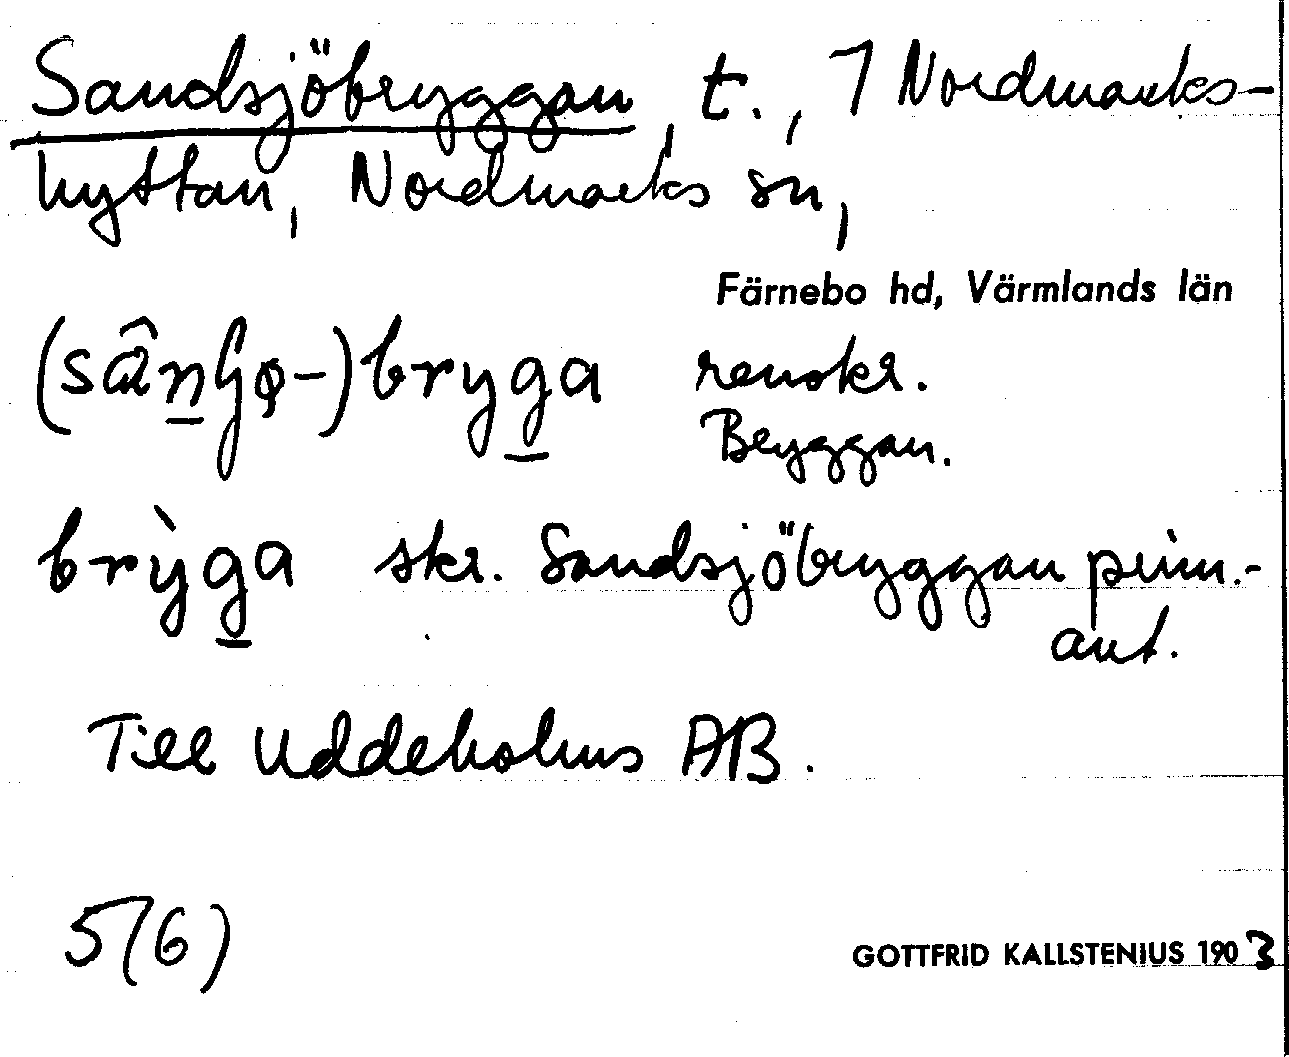 Sandsjöbryggan, t., 7 Nordmarks-
hyttan, Nordmarks sn,
Färnebo hd, Värmlands län
bryga renskr.
Bryggan.
brỳga skr. Sandsjöbryggan prim.-
ant.
Till Uddeholms AB.
5(6)
GOTTFRID KALLSTENIUS 1903